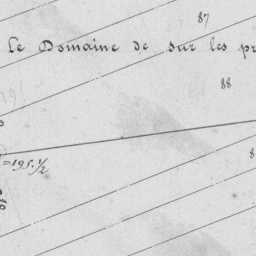 87
le Domaine de sur les pr
88
=195.1/2
8